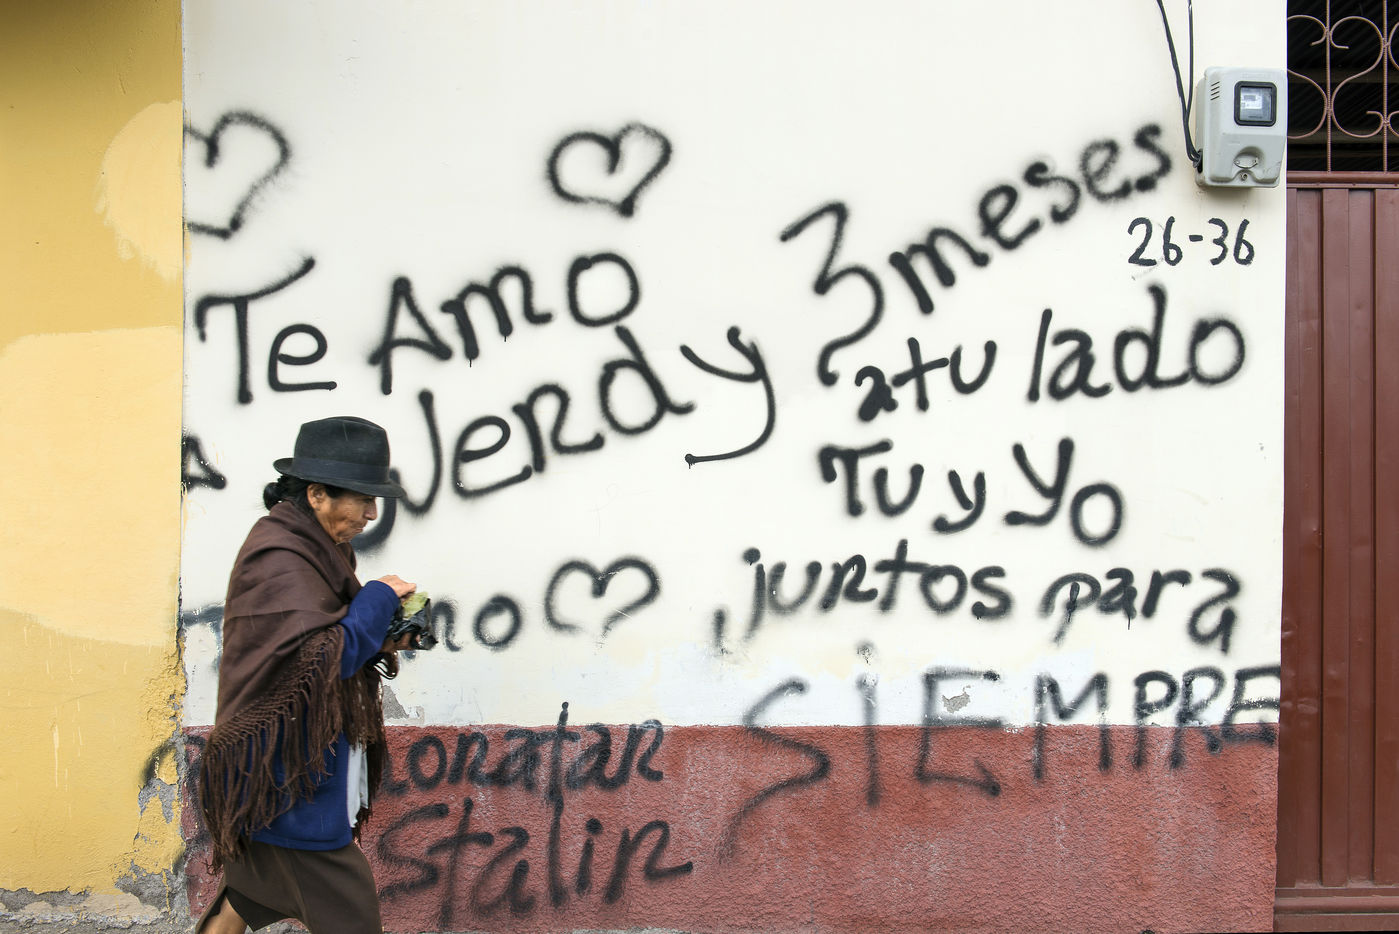 Te Amo
Wendy
3 meses
26-36
a tu lado
Tu y Yo
juntos para
SIEMPRE
Stalin